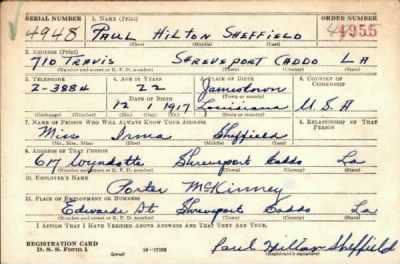 SERIAL NUMBER 1. NAME (Print) ORDER NUMBER
4948 PAUL HILTON SHEFFIELD 4955
(First) (Middle) (Last)
2. ADDRESS (Print)
710 TRAVIS SHREVEPORT CADDO LA
(Number and street or R. F. D. number) (Town) (County) (State)
3. TELEPHONE 4. AGE IN YEARS 5. PLACE OF BIRTH 6. COUNTRY OF CITIZENSHIP
2-3884 22 Jamestown
DATE OF BIRTH (Town or county)
12 1 1917 Louisiana U.S.A
(Exchange) (Number) (Mo.) (Day) (Yr.) (State or country)
7. NAME OF PERSON WHO WILL ALWAYS KNOW YOUR ADDRESS 8. RELATIONSHIP OF THAT PERSON
Miss Irma Sheffield
(Mr., Mrs., Miss) (First) (Middle) (Last)
9. ADDRESS OF THAT PERSON
617 Wyndotte Shreveport Caddo La
(Number and street or R. F. D. number) (Town) (County) (State)
10. EMPLOYER'S NAME
Porter McKinney
11. PLACE OF EMPLOYMENT OR BUSINESS
Edwards St Shreveport Caddo La
(Number and street or R. F. D. number) (Town) (County) (State)
I AFFIRM THAT I HAVE VERIFIED ABOVE ANSWERS AND THAT THEY ARE TRUE.
REGISTRATION CARD
D. S. S. Form 1 16-17105 Paul Hilton Sheffield
(over) (Registrant's signature)